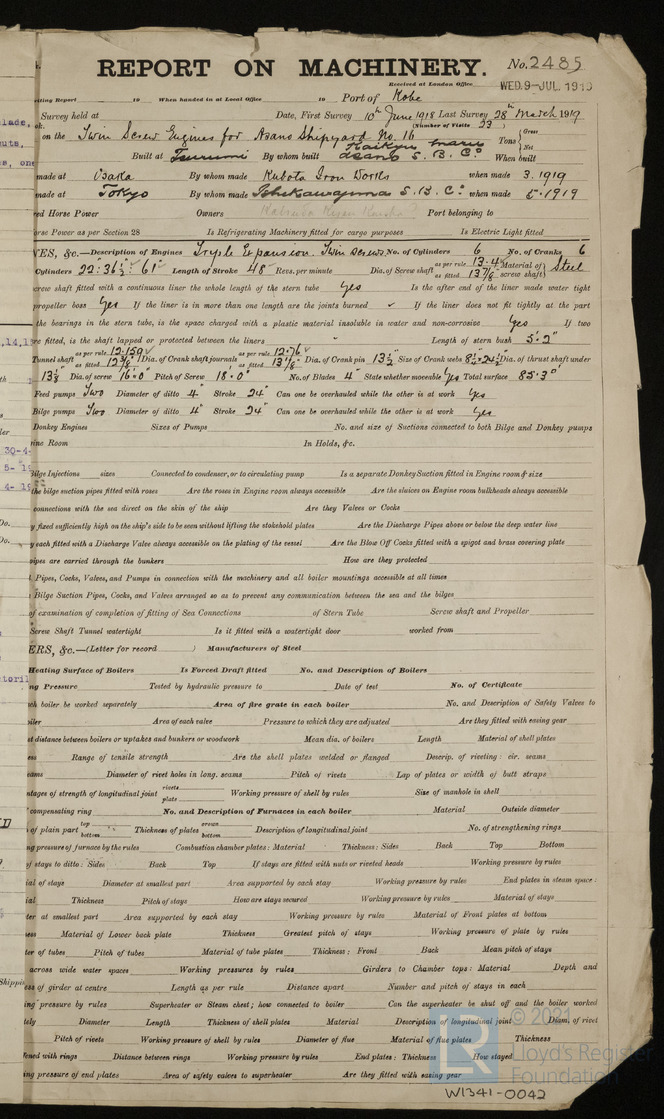 REPORT ON MACHINERY. No. 2485
Received at London Office WED. 9-JUL. 1919
iting Report 19 When handed in at Local Office 19 Port of Kobe
Survey held at Date, First Survey 10th June 1918 Last Survey 28th March 1919
(Number of Visits 23)
on the Twin Screw Engines for Asano Shipyard No. 16 Tons { Gross Net
Built at Tsurumi By whom built Asano S. B. Co When built
made at Osaka By whom made Kubota Iron Works when made 3.1919
made at Tokyo By whom made Ishikawajima S. B. Co. when made 5.1919
red Horse Power Owners Port belonging to
orse Power as per Section 28 Is Refrigerating Machinery fitted for cargo purposes Is Electric Light fitted
NES, &c.—Description of Engines Triple Expansion. Twin screw No. of Cylinders 6 No. of Cranks 6
Cylinders 22: 36½: 61" Length of Stroke 48" Revs. per minute Dia. of Screw shaft as per rule 13.4 as fitted 13⅞ Material of screw shaft } Steel
crew shaft fitted with a continuous liner the whole length of the stern tube Yes Is the after end of the liner made water tight
propeller boss Yes If the liner is in more than one length are the joints burned ✓ If the liner does not fit tightly at the part
the bearings in the stern tube, is the space charged with a plastic material insoluble in water and non-corrosive Yes If two
are fitted, is the shaft lapped or protected between the liners Length of stern bush 5'.2"
Tunnel shaft as per rule 12.159 as fitted Dia. of Crank shaft journals as per rule 12.76 as fitted Dia. of Crank pin 13½" Size of Crank webs Dia. of thrust shaft under
Dia. of screw 16'.0" Pitch of Screw 18'.0" No. of Blades 4 State whether moveable Yes Total surface 85.3
Feed pumps Two Diameter of ditto 4" Stroke 24" Can one be overhauled while the other is at work Yes
Bilge pumps Two Diameter of ditto 4" Stroke 24" Can one be overhauled while the other is at work Yes
Donkey Engines Sizes of Pumps No. and size of Suctions connected to both Bilge and Donkey pumps
ine Room In Holds, &c.
Bilge Injections sizes Connected to condenser, or to circulating pump Is a separate Donkey Suction fitted in Engine room & size
the bilge suction pipes fitted with roses Are the roses in Engine room always accessible Are the sluices on Engine room bulkheads always accessible
connections with the sea direct on the skin of the ship Are they Valves or Cocks
y fixed sufficiently high on the ship's side to be seen without lifting the stokehold plates Are the Discharge Pipes above or below the deep water line
y each fitted with a Discharge Valve always accessible on the plating of the vessel Are the Blow Off Cocks fitted with a spigot and brass covering plate
pipes are carried through the bunkers How are they protected
l Pipes, Cocks, Valves, and Pumps in connection with the machinery and all boiler mountings accessible at all times
Bilge Suction Pipes, Cocks, and Valves arranged so as to prevent any communication between the sea and the bilges
of examination of completion of fitting of Sea Connections of Stern Tube Screw shaft and Propeller
Screw Shaft Tunnel watertight Is it fitted with a watertight door worked from
ERS, &c.—(Letter for record ) Manufacturers of Steel
Heating Surface of Boilers Is Forced Draft fitted No. and Description of Boilers
ng Pressure Tested by hydraulic pressure to Date of test No. of Certificate
ch boiler be worked separately Area of fire grate in each boiler No. and Description of Safety Valves to
oiler Area of each valve Pressure to which they are adjusted Are they fitted with easing gear
st distance between boilers or uptakes and bunkers or woodwork Mean dia. of boilers Length Material of shell plates
ess Range of tensile strength Are the shell plates welded or flanged Descrip. of riveting: cir. seams
eams Diameter of rivet holes in long. seams Pitch of rivets Lap of plates or width of butt straps
ntages of strength of longitudinal joint rivets plate Working pressure of shell by rules Size of manhole in shell
compensating ring No. and Description of Furnaces in each boiler Material Outside diameter
of plain part top bottom Thickness of plates crown bottom Description of longitudinal joint No. of strengthening rings
ng pressure of furnace by the rules Combustion chamber plates: Material Thickness: Sides Back Top Bottom
of stays to ditto: Sides Back Top If stays are fitted with nuts or riveted heads Working pressure by rules
ial of stays Diameter at smallest part Area supported by each stay Working pressure by rules End plates in steam space:
ial Thickness Pitch of stays How are stays secured Working pressure by rules Material of stays
ter at smallest part Area supported by each stay Working pressure by rules Material of Front plates at bottom
ness Material of Lower back plate Thickness Greatest pitch of stays Working pressure of plate by rules
ter of tubes Pitch of tubes Material of tube plates Thickness: Front Back Mean pitch of stays
across wide water spaces Working pressures by rules Girders to Chamber tops: Material Depth and
ess of girder at centre Length as per rule Distance apart Number and pitch of stays in each
ing pressure by rules Superheater or Steam chest; how connected to boiler Can the superheater be shut off and the boiler worked
tely Diameter Length Thickness of shell plates Material Description of longitudinal joint Diam. of rivet
Pitch of rivets Working pressure of shell by rules Diameter of flue Material of flue plates Thickness
fened with rings Distance between rings Working pressure by rules End plates: Thickness How stayed
ing pressure of end plates Area of safety valves to superheater Are they fitted with easing gear
© 2021
LR Lloyd's Register Foundation
W1341-0042